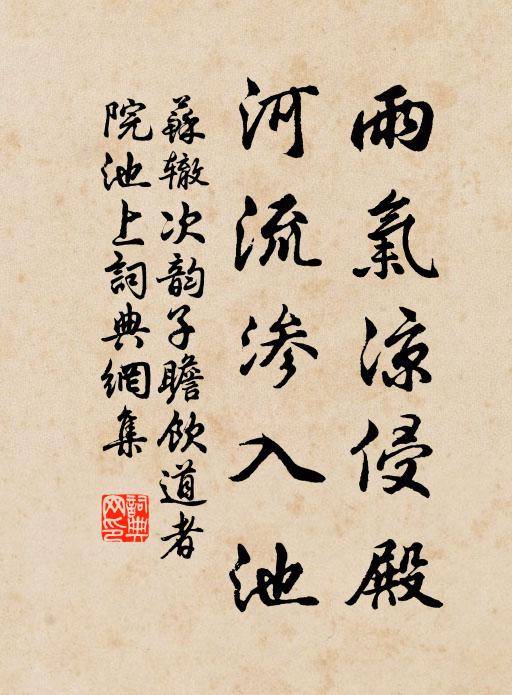 雨氣涼侵殿
河流渗入池
蘇辙次韵子瞻飲道者
院池上詞典網集
詞典网印